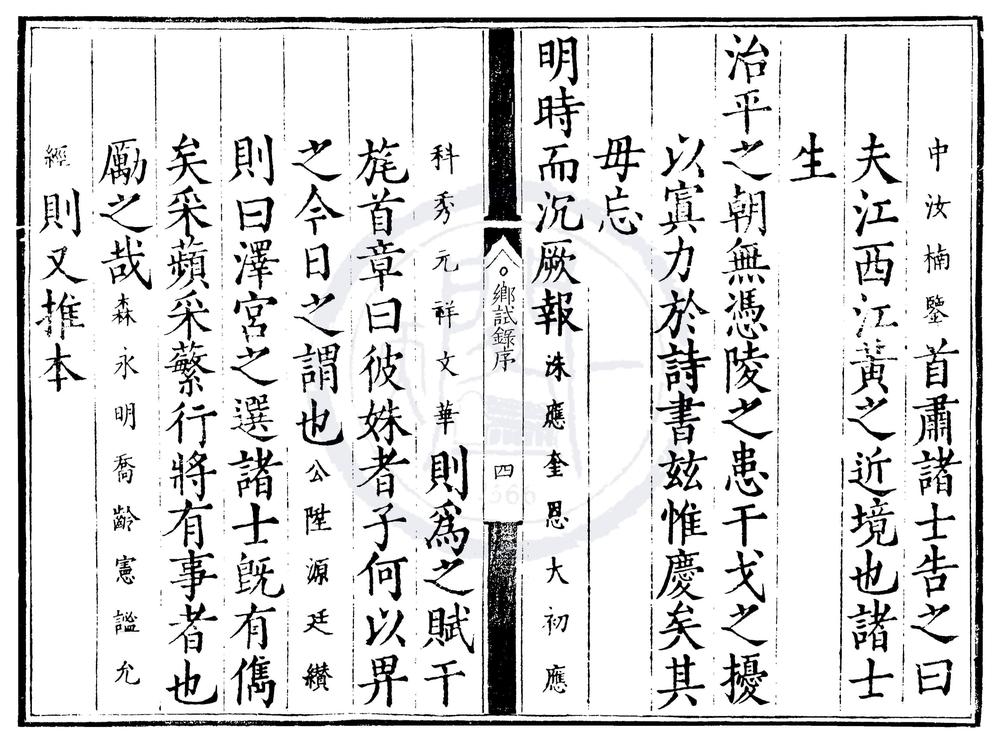 中汝楠鑒首肅諸士告之曰
夫江西江黃之近境也諸士
生
治平之朝無憑陵之患干戈之擾
以寘力於詩書兹惟慶矣其
毋忘
明時而沉厥報洙應奎恩大初應
鄉試錄序
四
科秀元祥文華則爲之賦干
旄首章曰彼姝者子何以畀
之今日之謂也公陞源廷纉
則曰澤宮之選諸士旣有儁
矣采蘋采蘩行將有事者也
勵之哉森永明喬齡憲謐允
經則又搉本